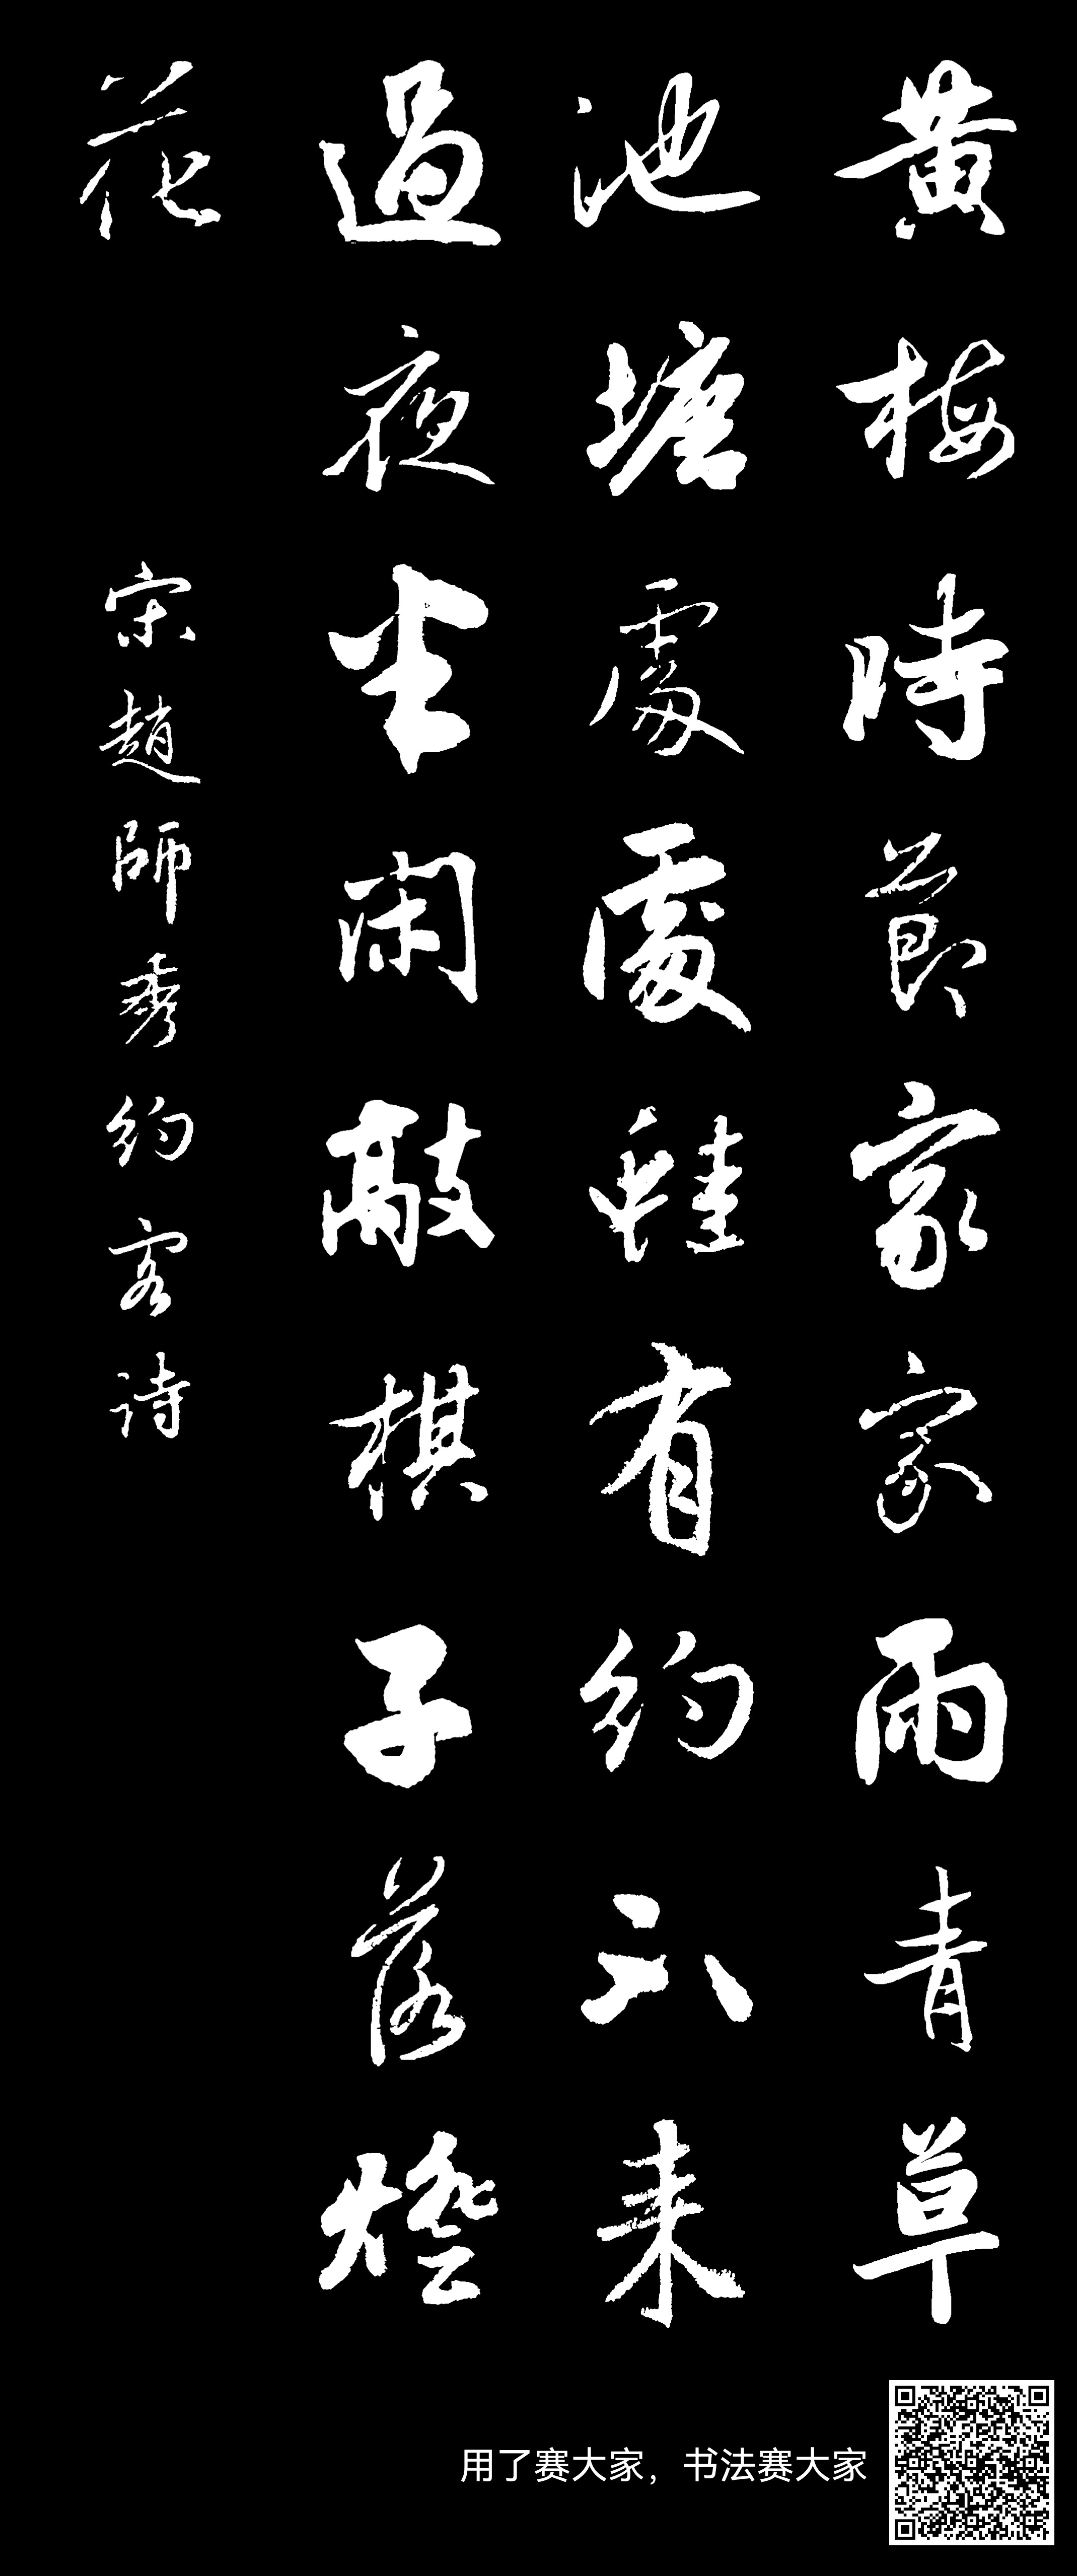 黄梅時節家家雨青草
池塘處處蛙有約不来
過夜半闲敲棋子落燈
花
宋趙師秀約客诗
用了赛大家，书法赛大家